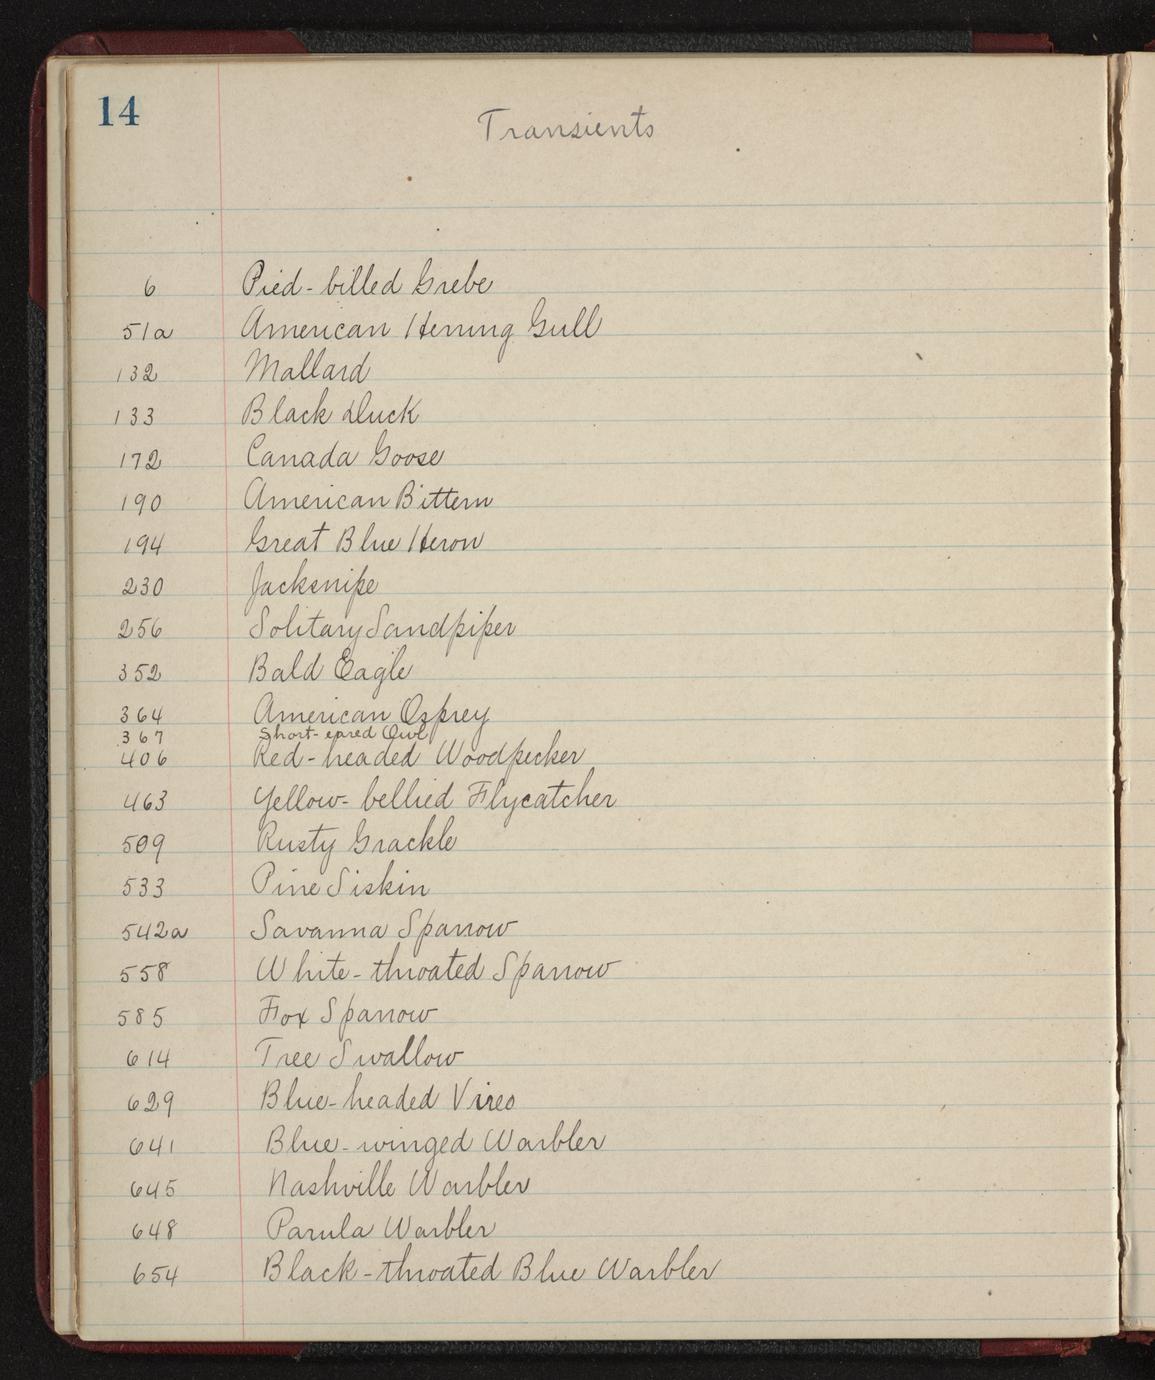 14
Transients
6 Pied-billed Grebe
51a American Herring Gull
132 Mallard
133 Black Duck
172 Canada Goose
190 American Bittern
194 Great Blue Heron
230 Jacksnipe
256 Solitary Sandpiper
352 Bald Eagle
364 American Osprey
367 Short-eared Owl
406 Red-headed Woodpecker
463 Yellow-bellied Flycatcher
509 Rusty Grackle
533 Pine Siskin
542a Savanna Sparrow
558 White-throated Sparrow
585 Fox Sparrow
614 Tree Swallow
629 Blue-headed Vireo
641 Blue-winged Warbler
645 Nashville Warbler
648 Parula Warbler
654 Black-throated Blue Warbler